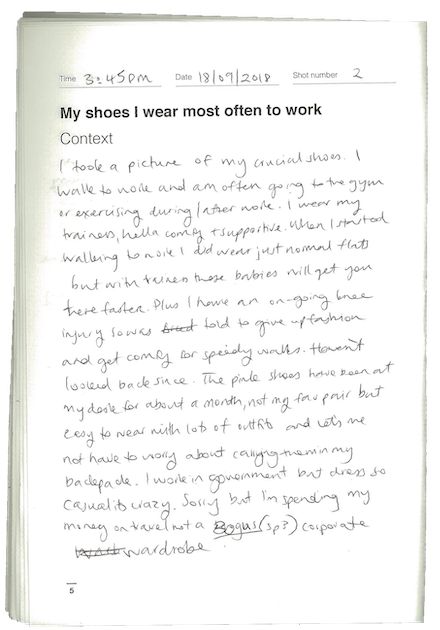 Time 3:45pm Date 18/09/2018 Shot number 2
My shoes I wear most often to work
Context
I took a picture of my crucial shoes. I
walk to work and am often going to the gym
or exercising during/after work. I wear my
trainers, hella comfy + supportive. When I started
walking to work I did wear just normal flats
but with trainers those babies will get you
there faster. Plus I have an on-going knee
injury so was told to give up fashion
and get comfy for speedy walks. Haven't
looked back since. The pink shoes have been at
my desk for about a month, not my fav pair but
easy to wear with lots of outfits and let's me
not have to worry about carrying them in my
backpack. I work in government but dress so
casual its crazy. Sorry but I'm spending my
money on travel not a Bogus (sp?) corporate
wardrobe.
5